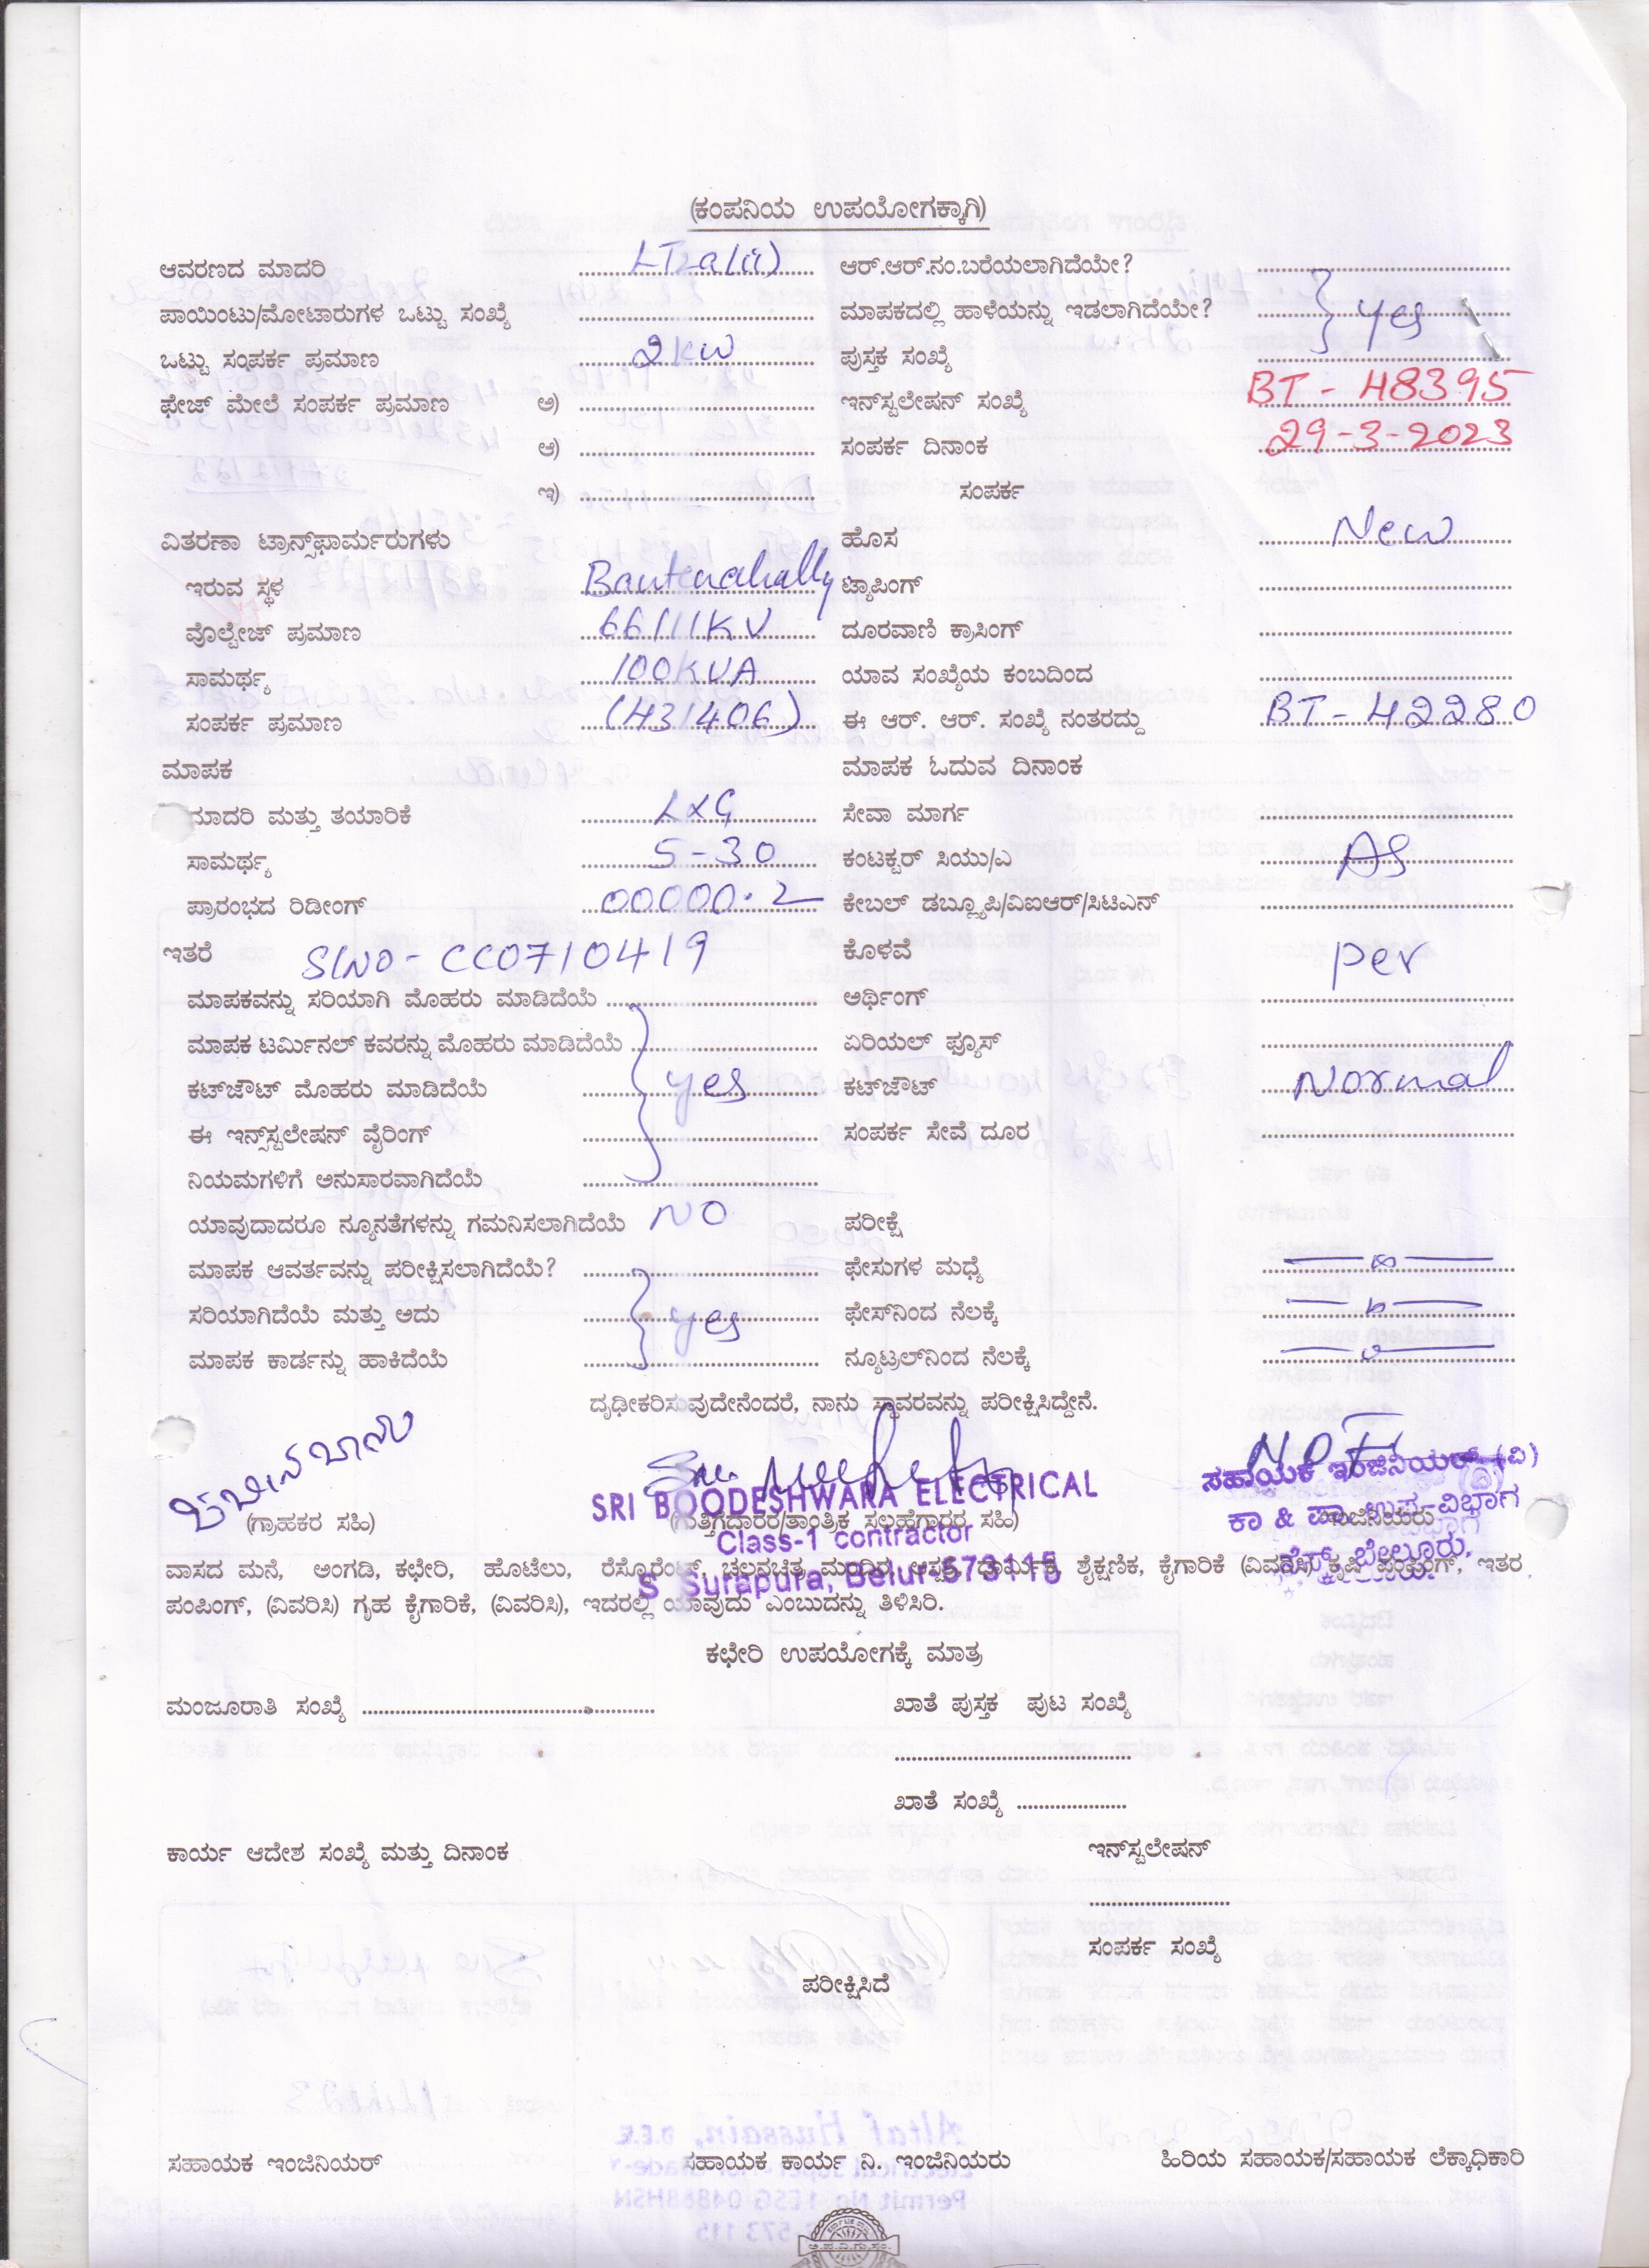 (ಕಂಪನಿಯ ಉಪಯೋಗಕ್ಕಾಗಿ)
ಆವರಣದ ಮಾದರಿ LT2a(ii) ಆರ್.ಆರ್.ನಂ.ಬರೆಯಲಾಗಿದೆಯೇ?
ಪಾಯಿಂಟು/ಮೋಟಾರುಗಳ ಒಟ್ಟು ಸಂಖ್ಯೆ ಮಾಪಕದಲ್ಲಿ ಹಾಳೆಯನ್ನು ಇಡಲಾಗಿದೆಯೇ? yes
ಒಟ್ಟು ಸಂಪರ್ಕ ಪ್ರಮಾಣ 2kw ಪುಸ್ತಕ ಸಂಖ್ಯೆ
ಫೇಜ್ ಮೇಲೆ ಸಂಪರ್ಕ ಪ್ರಮಾಣ ಅ) ಇನ್‌ಸ್ಟಲೇಷನ್ ಸಂಖ್ಯೆ BT - 48395
ಆ) ಸಂಪರ್ಕ ದಿನಾಂಕ 29-3-2023
ಇ) ಸಂಪರ್ಕ
ವಿತರಣಾ ಟ್ರಾನ್ಸ್‌ಫಾರ್ಮರುಗಳು ಹೊಸ New
ಇರುವ ಸ್ಥಳ Bantenahally ಟ್ಯಾಪಿಂಗ್
ವೊಲ್ಟೇಜ್ ಪ್ರಮಾಣ 66/11KV ದೂರವಾಣಿ ಕ್ರಾಸಿಂಗ್
ಸಾಮರ್ಥ್ಯ 100KVA ಯಾವ ಸಂಖ್ಯೆಯ ಕಂಬದಿಂದ
ಸಂಪರ್ಕ ಪ್ರಮಾಣ (431406) ಈ ಆರ್. ಆರ್. ಸಂಖ್ಯೆ ನಂತರದ್ದು BT - 42280
ಮಾಪಕ ಮಾಪಕ ಓದುವ ದಿನಾಂಕ
ಮಾದರಿ ಮತ್ತು ತಯಾರಿಕೆ L&G ಸೇವಾ ಮಾರ್ಗ
ಸಾಮರ್ಥ್ಯ 5-30 ಕಂಟಕ್ಟರ್ ಸಿಯು/ಎ AS
ಪ್ರಾರಂಭದ ರಿಡೀಂಗ್ 00000.2 ಕೇಬಲ್ ಡಬ್ಲ್ಯೂಪಿ/ವಿಐಆರ್/ಸಿಟಿಎನ್
ಇತರೆ SLNO - CC0710419 ಕೊಳವೆ per
ಮಾಪಕವನ್ನು ಸರಿಯಾಗಿ ಮೊಹರು ಮಾಡಿದೆಯೆ ಅರ್ಥಿಂಗ್
ಮಾಪಕ ಟರ್ಮಿನಲ್ ಕವರನ್ನು ಮೊಹರು ಮಾಡಿದೆಯೆ ಏರಿಯಲ್ ಫ್ಯೂಸ್
ಕಟ್‌ಔಟ್ ಮೊಹರು ಮಾಡಿದೆಯೆ yes ಕಟ್‌ಔಟ್ Normal
ಈ ಇನ್ಸ್‌ಸ್ಟಲೇಷನ್ ವೈರಿಂಗ್ ಸಂಪರ್ಕ ಸೇವೆ ದೂರ
ನಿಯಮಗಳಿಗೆ ಅನುಸಾರವಾಗಿದೆಯೆ
ಯಾವುದಾದರೂ ನ್ಯೂನತೆಗಳನ್ನು ಗಮನಿಸಲಾಗಿದೆಯೆ NO ಪರೀಕ್ಷೆ
ಮಾಪಕ ಆವರ್ತವನ್ನು ಪರೀಕ್ಷಿಸಲಾಗಿದೆಯೆ? ಫೇಸುಗಳ ಮಧ್ಯೆ
ಸರಿಯಾಗಿದೆಯೆ ಮತ್ತು ಅದು yes ಫೇಸ್‌ನಿಂದ ನೆಲಕ್ಕೆ
ಮಾಪಕ ಕಾರ್ಡನ್ನು ಹಾಕಿದೆಯೆ ನ್ಯೂಟ್ರಲ್‌ನಿಂದ ನೆಲಕ್ಕೆ
ದೃಢೀಕರಿಸುವುದೇನೆಂದರೆ, ನಾನು ಸ್ಥಾವರವನ್ನು ಪರೀಕ್ಷಿಸಿದ್ದೇನೆ.
SRI BOODESHWARA ELECTRICAL ಸಹಾಯಕ ಇಂಜಿನಿಯರ್ (ವಿ)
(ಗ್ರಾಹಕರ ಸಹಿ) (ಗುತ್ತಿಗೆದಾರರ/ತಾಂತ್ರಿಕ ಸಲಹೆಗಾರರ ಸಹಿ) ಕಾ & ಪಾ ಉಪ ವಿಭಾಗ ಇಂಜಿನಿಯರು
Class-1 contractor ಬೇಲೂರು.
ವಾಸದ ಮನೆ, ಅಂಗಡಿ, ಕಛೇರಿ, ಹೊಟೆಲು, ರೆಸ್ಟೊರೆಂಟ್, ಚಲನಚಿತ್ರ ಮಂದಿರ, ಆಸ್ಪತ್ರೆ, ಧಾರ್ಮಿಕ, ಶೈಕ್ಷಣಿಕ, ಕೈಗಾರಿಕೆ (ವಿವರಿಸಿ) ಕೃಷಿ ಪಂಪಿಂಗ್, ಇತರ
S Surapura, Belur-573115
ಪಂಪಿಂಗ್, (ವಿವರಿಸಿ) ಗೃಹ ಕೈಗಾರಿಕೆ, (ವಿವರಿಸಿ), ಇದರಲ್ಲಿ ಯಾವುದು ಎಂಬುದನ್ನು ತಿಳಿಸಿರಿ.
ಕಛೇರಿ ಉಪಯೋಗಕ್ಕೆ ಮಾತ್ರ
ಮಂಜೂರಾತಿ ಸಂಖ್ಯೆ ಖಾತೆ ಪುಸ್ತಕ ಪುಟ ಸಂಖ್ಯೆ
ಖಾತೆ ಸಂಖ್ಯೆ
ಕಾರ್ಯ ಆದೇಶ ಸಂಖ್ಯೆ ಮತ್ತು ದಿನಾಂಕ ಇನ್‌ಸ್ಟಲೇಷನ್
ಸಂಪರ್ಕ ಸಂಖ್ಯೆ
ಪರೀಕ್ಷಿಸಿದೆ
ಸಹಾಯಕ ಇಂಜಿನಿಯರ್ ಸಹಾಯಕ ಕಾರ್ಯ ನಿ. ಇಂಜಿನಿಯರು ಹಿರಿಯ ಸಹಾಯಕ/ಸಹಾಯಕ ಲೆಕ್ಕಾಧಿಕಾರಿ